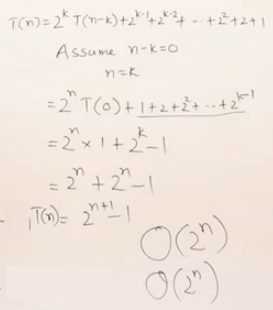 T(n) = 2^k T(n-k) + 2^{k-1} + 2^{k-2} + -- + 2^2 + 2 + 1
Assume n-k=0
n=k
= 2^n T(0) + 1+2+2^2+ -- + 2^{k-1}
= 2^n × 1 + 2^k - 1
= 2^n + 2^n - 1
T(n) = 2^{n+1} - 1
O(2^n)
O(2^n)